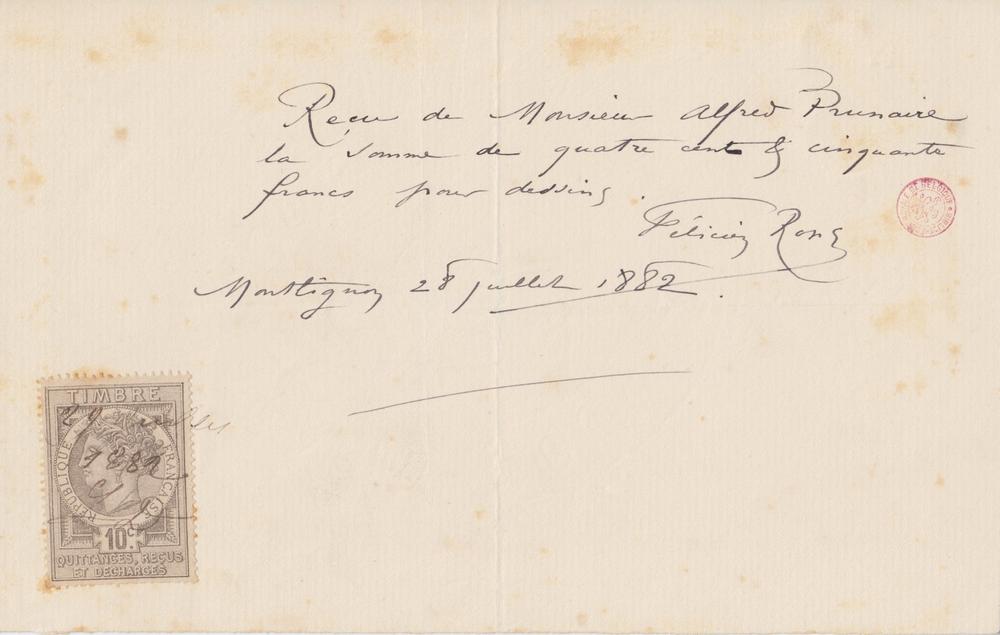 Reçu de Monsieur Alfred Prunaire
la somme de quatre cent & cinquante
francs pour dessins.
Félicien Rops
Montlignon 28 juillet 1882.
TIMBRE
RÉPUBLIQUE FRANÇAISE
1882
10c.
QUITTANCES, REÇUS
ET DÉCHARGES
DE BELGIQUE